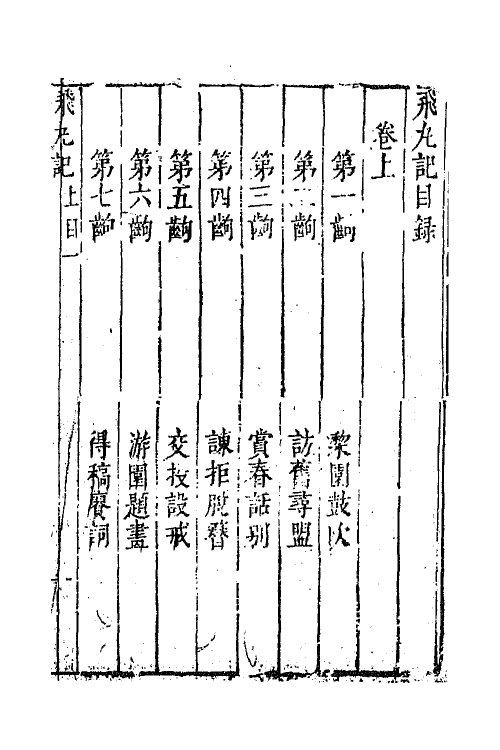 飛丸記目録
卷上
第一齣 梨園鼓吹
第二齣 訪舊尋盟
第三齣 賞春話別
第四齣 諫拒脫簪
第五齣 交投設戒
第六齣 游園題畫
第七齣 得稿賡詞
飛丸記 上目 一